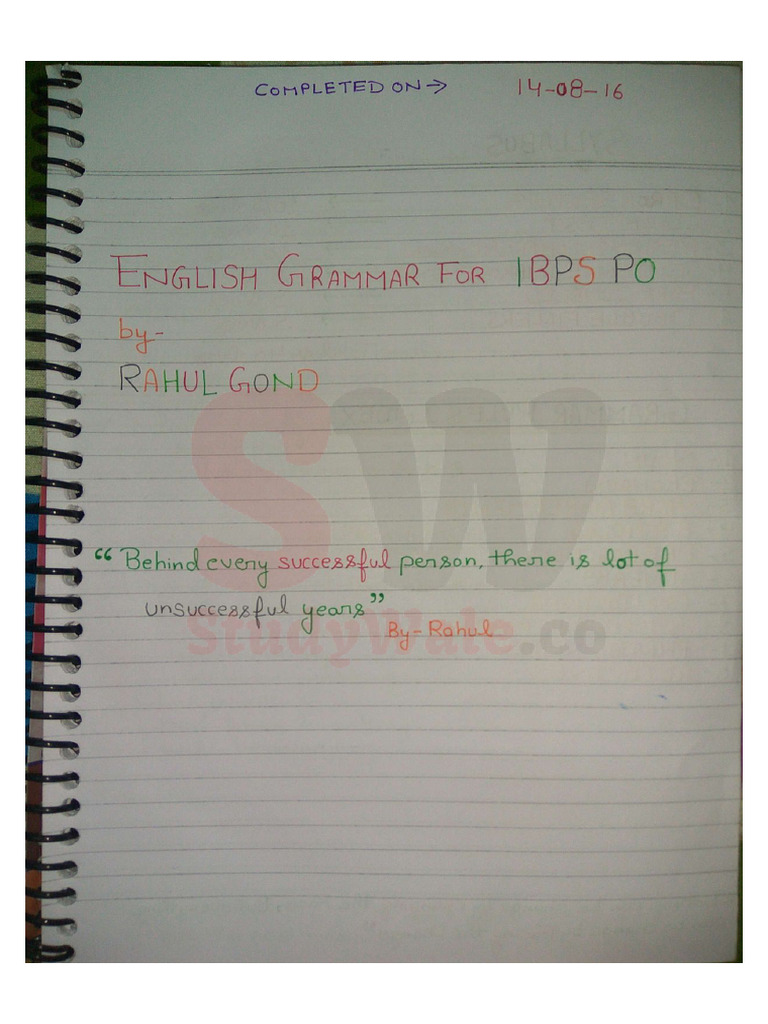 COMPLETED ON → 14-08-16
ENGLISH GRAMMAR FOR IBPS PO
by-
RAHUL GOND
SW
“Behind every successful person, there is lot of
unsuccessful years”
By- Rahul
StudyWale.co